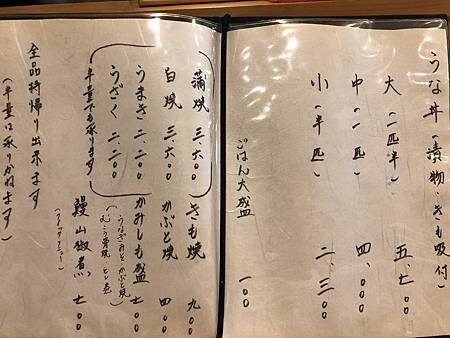 うな丼(漬物・きも吸付)
大(一匹半) 五、七〇〇
中(一匹) 四、〇〇〇
小(半匹) 二、三〇〇
ごはん大盛 一〇〇
蒲焼 三、六〇〇
白焼 三、六〇〇
うまき 二、二〇〇
うざく 二、二〇〇
半量でも承ります
きも焼 九〇〇
かぶと焼 四〇〇
かみしも盛 七〇〇
(うなぎみそ・かぶと焼
鰻山椒煮 七〇〇
全品持帰り出来ます
(半量は承りかねます)